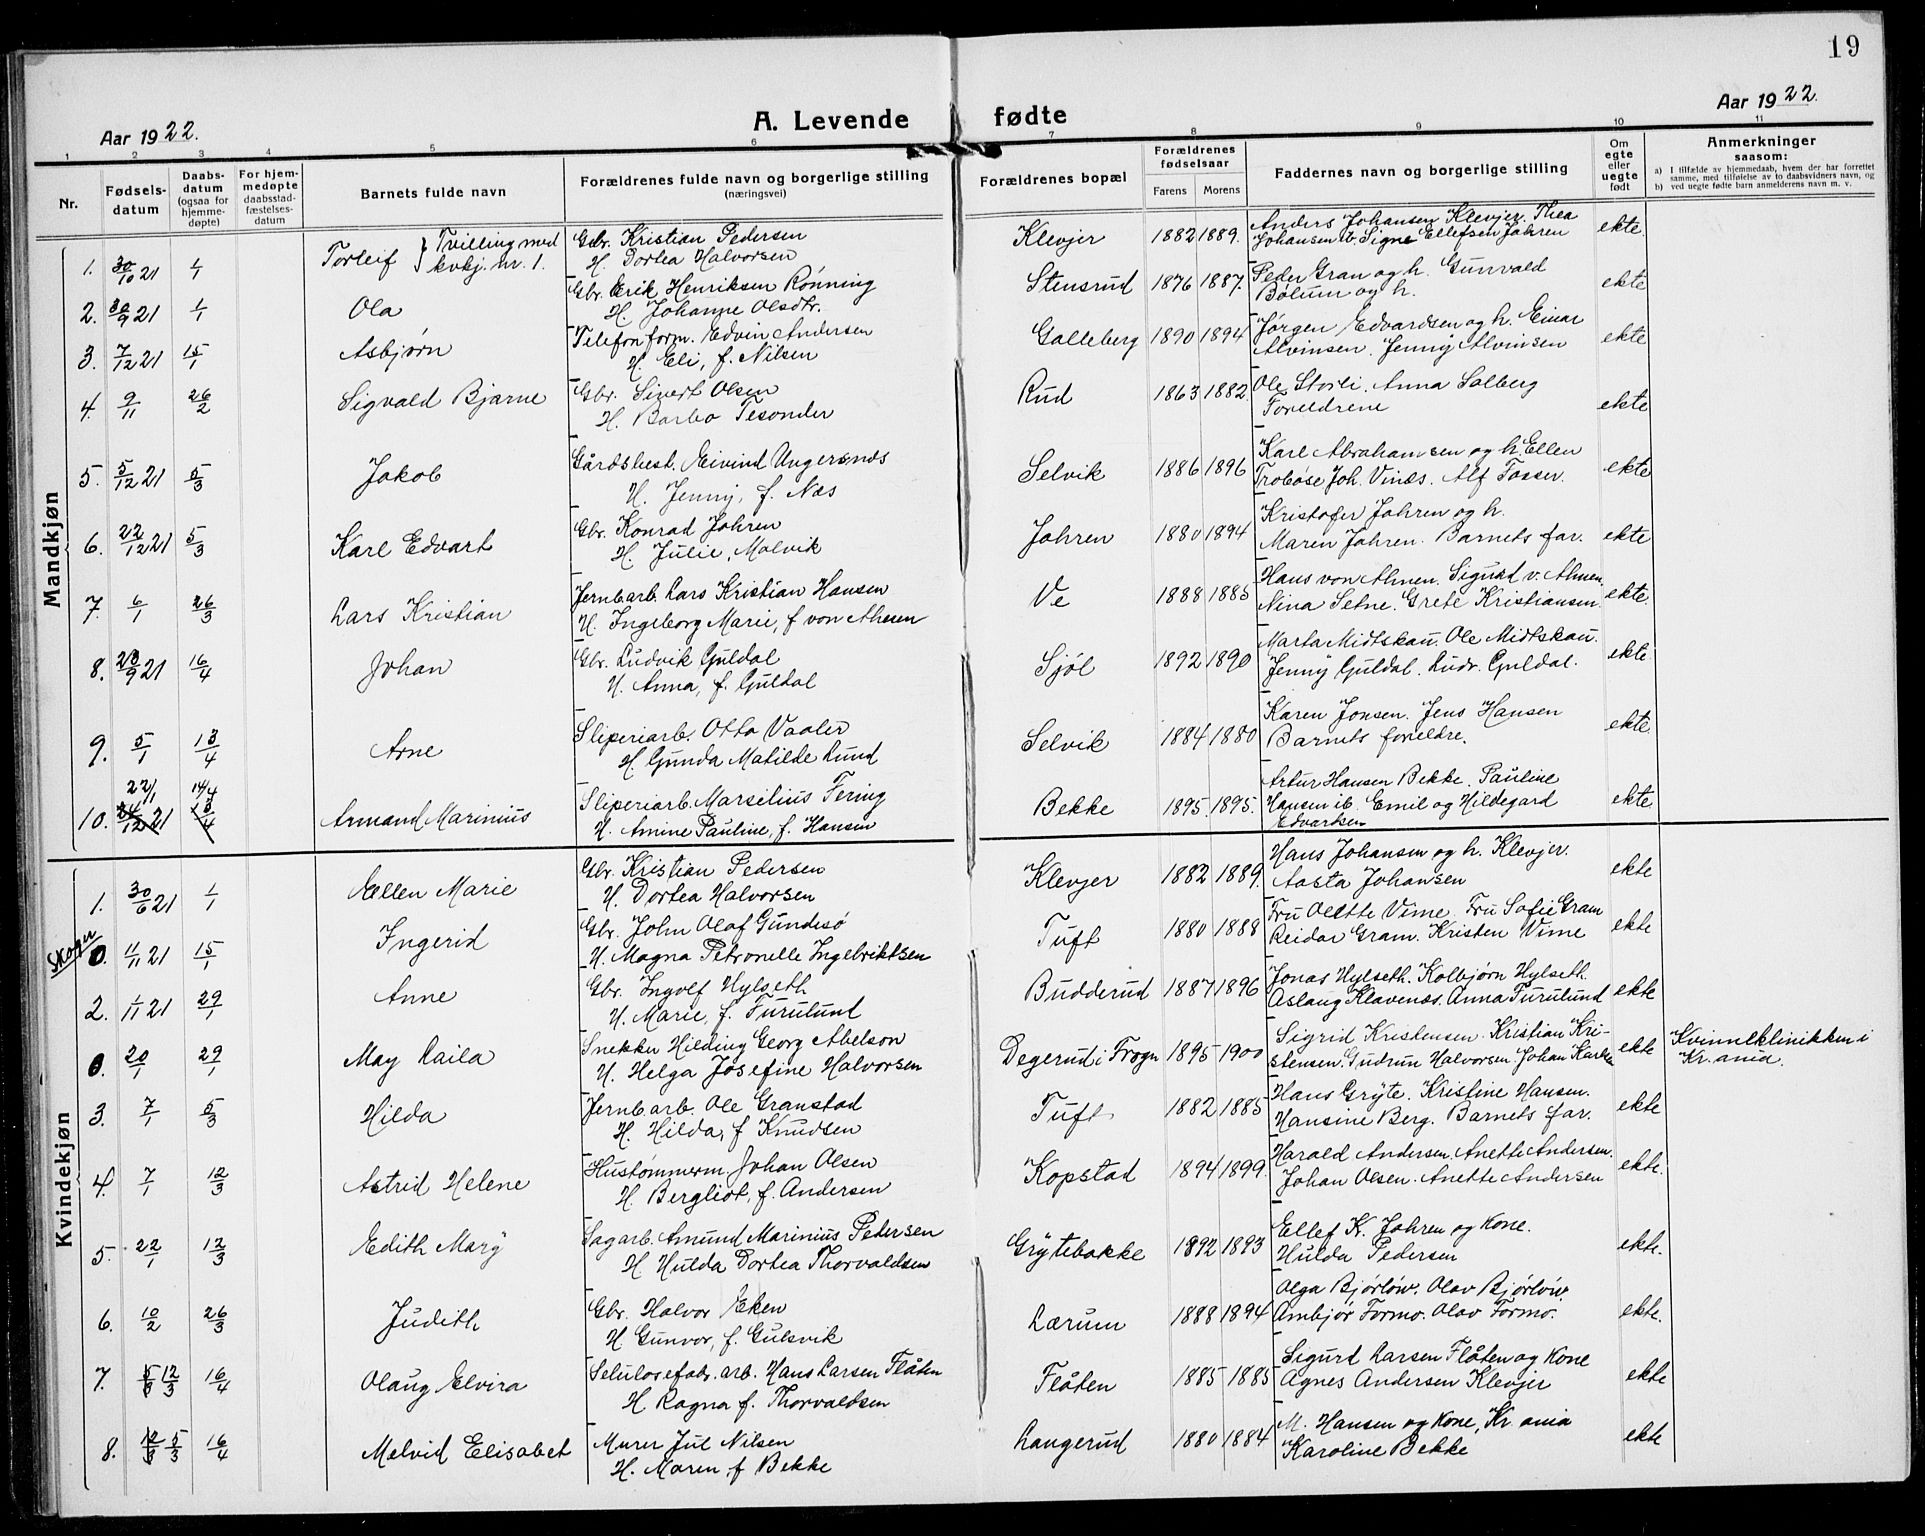 19
Aar 1922.
A. Levende fødte
Aar 1922.
1 2 3 4 5 6 7 8 9 10 11
Nr.
Fødsels-
datum
Daabs-
datum
(ogsaa for
hjemme-
døpte)
For hjem-
medøpte
daabsstad-
fæstelses-
datum
Barnets fulde navn
Forældrenes fulde navn og borgerlige stilling
(næringsvei)
Forældrenes bopæl
Forældrenes
fødselsaar
Farens Morens
Faddernes navn og borgerlige stilling
Om
egte
eller
uegte
født
Anmerkninger
saasom:
a) I tilfælde av hjemmedaab, hvem der har forrettet
samme, med tilføielse av to daabsvidners navn, og
b) ved uegte fødte barn anmelderens navn m. v.
Mandkjøn
1. 30/10 21 1/1 Torleif } Tvilling med kvkj. nr. 1. Gbr. Kristian Pedersen Klevjer 1882 1889. Anders Johansen Klevjer. Thea ekte.
H. Dortea Halvorsen Johansen ib. Signe Ellefsen Jahren
2. 30/9 21 1/1 Ola Gbr. Erik Henriksen Rønning Stensrud 1876 1887. Peder Gran og h. Gunvald ekte
H. Johanne Olsdtr. Bølum og h.
3. 7/12 21 15/1 Asbjørn Telefonform. Edvin Andersen Galleberg 1890 1894 Jørgen Edvardsen og h. Einar ekte
H. Eli, f. Nilsen Alvinsen. Jenny Alvinsen
4. 9/11 26/2 Sigvald Bjarne Gbr. Sivert Olsen Rud 1863 1882. Ole Storli. Anna Solberg ekte
H. Barbo Tesonder Foreldrene
5. 5/12 21 5/3 Jakob Gårdsbest. Eivind Ungersnes Selvik 1886 1896 Karl Abrahamsen og h. Ellen ekte
H. Jenny, f. Næs Trobøse Joh. Vinæs. Alf Fosser.
6. 22/12 21 5/3 Karl Edvart Gbr. Konrad Jahren Jahren 1880 1894 Kristofer Jahren og h. ekte
H. Julie, Malvik Maren Jahren. Barnets far.
7. 6/1 26/3 Lars Kristian Jernbarb. Lars Kristian Hansen Ve 1888 1885 Hans von Ahnen. Sigurd v. Ahnen. ekte.
H. Ingeborg Marie, f von Ahnen Nina Setne. Grete Kristiansen.
8. 23/9 21 16/4 Johan Gbr. Ludvik Guldal Sjøl 1892 1890 Marta Midtskau. Ole Midtskau. ekte.
H. Anna, f. Guldal Jenny Guldal. Ludv. Guldal.
9. 5/1 13/4 Arne Sliperiarb. Otto Vaaler Selvik 1884 1880 Karen Jonsen. Jens Hansen ekte
H. Gunda Matilde Lund Barnets foreldre.
22/1 14/4
10. 24/12 21 13/4 Armand Marinius Sliperiarb. Marselius Fering Bekke 1895. 1895. Artur Hansen Bekke. Pauline ekte
H. Amine Pauline, f. Hansen Hansen ib. Emil og Hildegard
Edvartsen
Kvindekjøn
1. 30/6 21 1/1 Ellen Marie Gbr. Kristian Pedersen Klevjer 1882 1889. Hans Johansen og h. Klevjer. ekte
H. Dortea Halvorsen Aasta Johansen
Skoger 0. 11/11 21 15/1 Ingerid Gbr. John Olaf Gundesø Tuft 1880 1888 Fru Olette Vime. Fru Sofie Gram ekte
H. Magna Petronelle Ingebriktsen Reidar Gram. Kristen Vime
2. 1/11 21 29/1 Anne Gbr. Ingolf Hylseth Budderud 1887 1896 Jonas Hylseth. Kolbjørn Hylseth. ekte
H. Marie, f. Furulund Aslaug Klavenæs. Anna Furulund
0. 20/1 29/1 May Laila Snekker Hilding Georg Abelson Degerud i Frogn 1895 1900 Sigrid Kristensen. Kristian Kri- ekte Kvinneklinikken i
H. Helga Josefine Halvorsen stensen. Gudrun Halvorsen. Johan Kr.ania.
3. 7/1 5/3 Hilda Jernbarb. Ole Granstad Tuft 1882 1885 Hans Gryte. Kristine Hansen. ekte
H. Hilda, f Knudsen Hansine Berg. Barnets far.
4. 7/1 12/3 Astrid Helene Hustømmerm. Johan Olsen Kopstad 1894 1899. Harald Andersen. Anette Andersen. ekte.
H. Bergliot, f. Andersen Johan Olsen. Anette Andersen
5. 22/1 12/3 Edith Mary Sagarb. Amund Marinius Pedersen Grytebakke 1892 1893 Ellef K. Jahren og kone. ekte.
H. Hulda Dortea Thorvaldsen Hulda Pedersen
6. 10/2 26/3 Judith Gbr. Halvor Eken Lærum 1888 1894 Olga Bjørløw. Olav Bjørløw. ekte.
H Gunvor, f. Gulsvik Ambjør Formo. Olav Formo.
7. 12/3 16/4 Olaug Elvira Selulosefabr. arb. Hans Larsen Flåten Flåten 1885 1885 Sigurd Larsen Flåten og kone ekte
H Ragna f. Thorvaldsen Agnes Andersen Klevjer
8. 5/3 16/4 Melvid Elisabet Murer Jul Nilsen Langerud 1880 1884 M. Hansen og kone, Kr.ania ekte
H. Maren, f Bekke Karoline Bekke